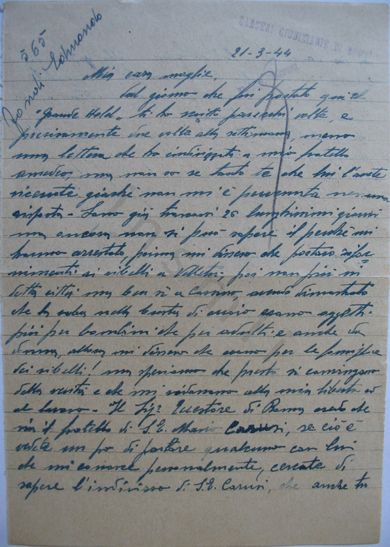 565
Zanoli Edmondo
CARCERI GIUDIZIARIE DI
21-3-44
Mia cara moglie,
Dal giorno che fui portato qui al
"Grande Hotel" ti ho scritto parecchie volte e
precisamente due volte alla settimana, meno
una lettera che ho indirizzata a mio fratello
Amedeo, ma non so se tanto te che lui l'avete
ricevute giacché non mi è pervenuta nessuna
risposta - Sono già trascorsi 25 lunghissimi giorni
ma ancora non si può sapere il perché mi
hanno arrestato, prima mi dissero che portavo rifor
nimenti ai ribelli a Velletri, poi non più in
detta città ma bensì a Carsino, avendo dimostrato
che la roba nella borsa di cuoio erano oggetti
più per bambini che per adulti e anche da
donna, allora mi dissero che erano per le famiglie
dei ribelli! ma speriamo che presto si convincano
della verità e che mi ridaranno alla mia libertà ed
al lavoro - Il Sig. Questore di Roma credo che
sia il fratello di S.E. Mario Caruso, se ciò è
vedete un po' di parlare qualcuno con lui
che mi conosce personalmente, cercate di
sapere l'indirizzo di S.E. Caruso, che anche tu